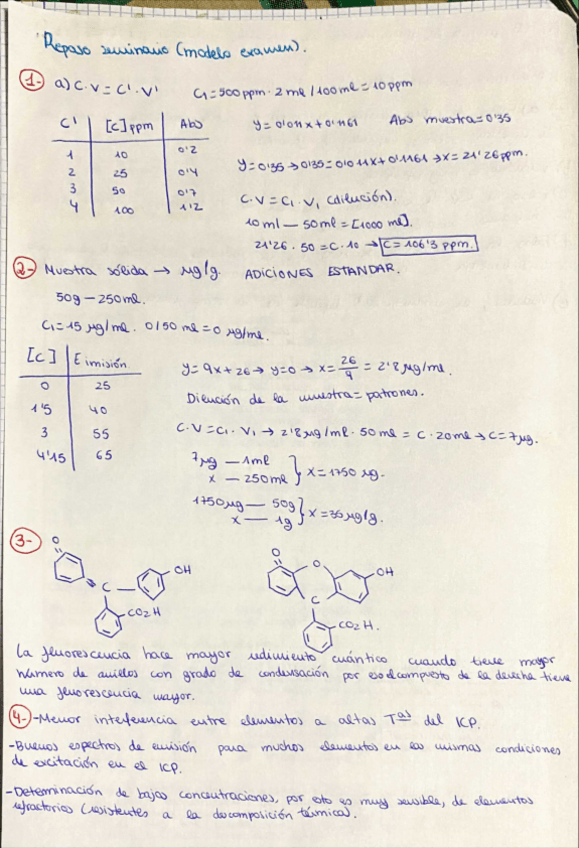 Repaso seminario (modelo examen).
1- a) C·V = C'·V' C₁ = 500 ppm · 2 ml / 100 ml = 10 ppm
C' [C] ppm Abs
1 10 0'2
2 25 0'4
3 50 0'7
4 100 1'2
y = 0'011x + 0'1161 Abs muestra = 0'35
y = 0'35 → 0'35 = 0'011x + 0'1161 → x = 21'26 ppm.
C·V = C₁·V₁ (dilución).
10 ml — 50 ml = [1000 ml].
21'26 · 50 = C · 10 → C = 106'3 ppm.
2- Muestra sólida → µg/g. ADICIONES ESTANDAR.
50g — 250 ml.
C₁ = 15 µg/ml · 0/50 ml = 0 µg/ml.
[C] Emisión
0 25
1'5 40
3 55
4'15 65
y = 9x + 26 → y = 0 → x = 26/9 = 2'8 µg/ml.
Dilución de la muestra = patrones.
C·V = C₁·V₁ → 2'8 µg/ml · 50 ml = C · 20 ml → C = 7 µg.
7 µg — 1 ml
x — 250 ml } x = 1750 µg.
1750 µg — 50g
x — 1g } x = 35 µg/g.
3-
O O O
C OH OH
C
CO₂H CO₂H.
La fluorescencia hace mayor rendimiento cuántico cuando tiene mayor
número de anillos con grado de condensación por eso el compuesto de la derecha tiene
una fluorescencia mayor.
4- - Menor interferencia entre elementos a altas Tᵃˢ del ICP.
- Buenos espectros de emisión para muchos elementos en las mismas condiciones
de excitación en el ICP.
- Determinación de bajas concentraciones, por esto es muy sensible, de elementos
refractorios (resistentes a la descomposición térmica).